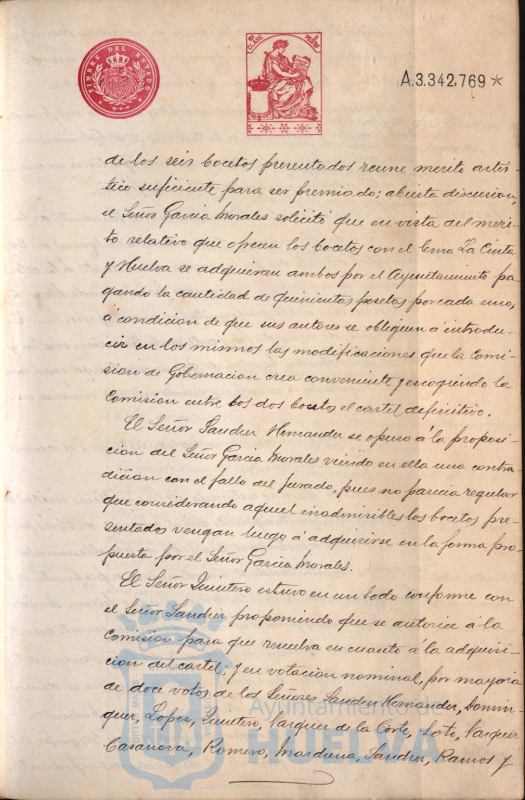 TIMBRE DEL ESTADO
CLASE
A.3.342,769 *
de los seis bocetos presentados reune merito artis-
tico suficiente para ser premiado; abierta discusion,
el Señor Garcia Morales solicitó que en vista del meri-
to relativo que ofrecen los bocetos con el lema La Cinta
y Huelva se adquieran ambos por el Ayuntamiento pa-
gando la cantidad de quinientas pesetas por cada uno,
a condicion de que sus autores se obliguen á introdu-
cir en los mismos las modificaciones que la Comi-
sion de Gobernacion crea conveniente y escogiendo la
Comision entre los dos bocetos el cartel definitivo.
El Señor Sander Hernander se opuso á la proposi-
cion del Señor Garcia Morales viendo en ella una contra-
diccion con el fallo del jurado, pues no parecia regular
que considerando aquel inadmisibles los bocetos pre-
sentados vengan luego á adquirirse en la forma pro-
puesta por el Señor Garcia Morales.
El Señor Quintero estuvo en un todo conforme con
el Señor Sander proponiendo que se autorice á la
Comision para que resuelva en cuanto á la adquisi-
cion del cartel; y en votacion nominal, por mayoria
de doce votos de los Señores Sander Hernander, Domin-
guer, Lopez, Quintero, Vazquez de la Corte, Soto, Vazquez
Casanova, Romero, Mardiena, Sander, Ramos y
Ayuntamiento de
HUELVA